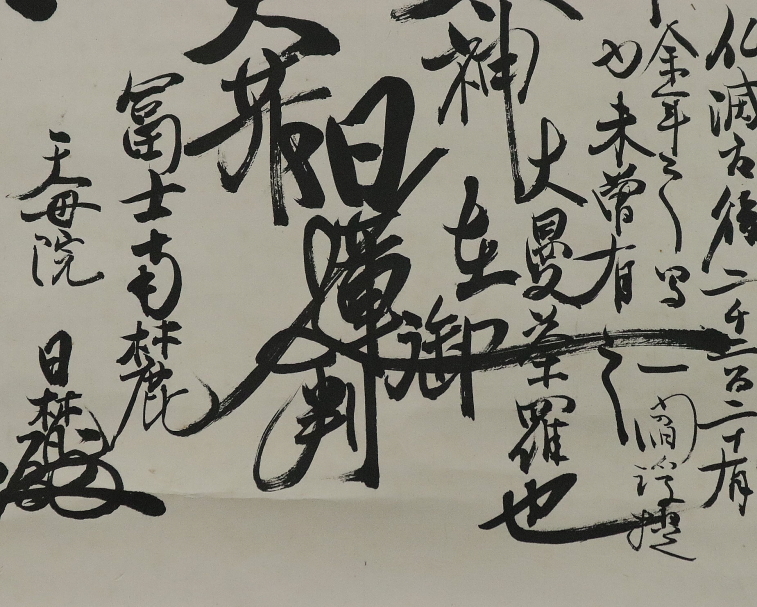 仏滅度後二千二百二十有
余年之間一閻浮提
内未曾有之
大曼荼羅也
神
在御
日蓮
判
大
富士南麓
王母院
日